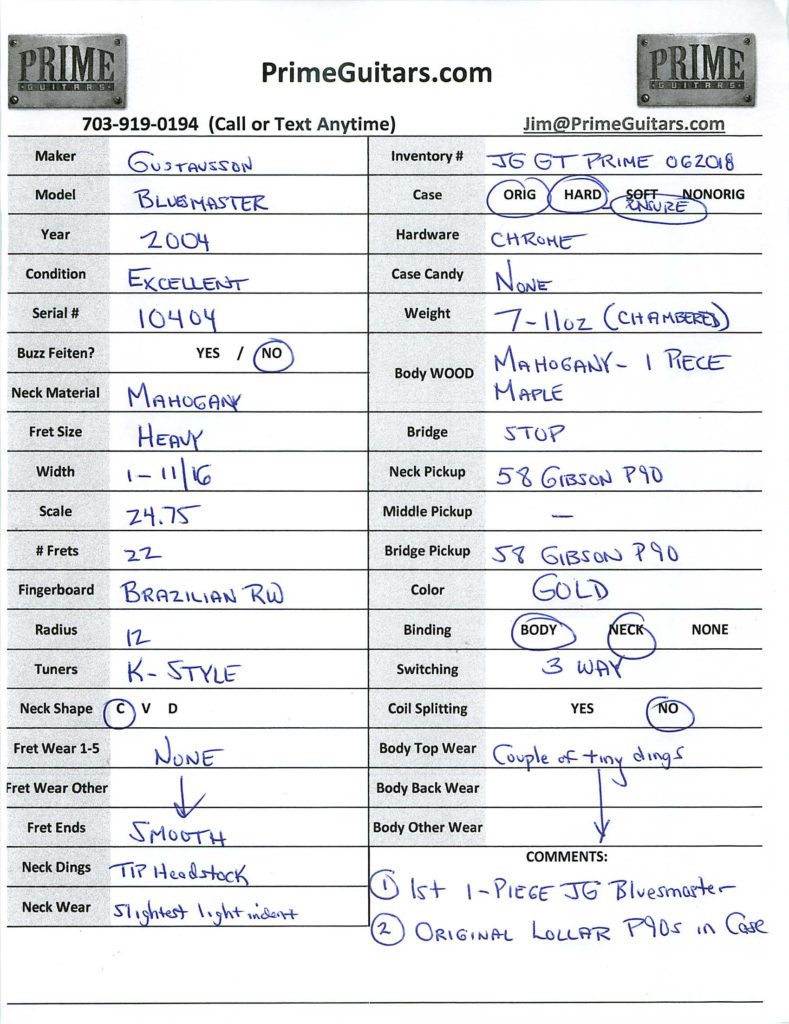 PRIME
GUITARS
PrimeGuitars.com
PRIME
GUITARS
703-919-0194 (Call or Text Anytime)
Jim@PrimeGuitars.com
Maker GUSTAVSSON
Inventory # JG GT PRIME 062018
Model BLUESMASTER
Case ORIG HARD SOFT NONORIG
ENSURE
Year 2004
Hardware CHROME
Condition EXCELLENT
Case Candy NONE
Serial # 10404
Weight 7-11oz (CHAMBERED)
Buzz Feiten? YES / NO
Body WOOD MAHOGANY- 1 PIECE
MAPLE
Neck Material MAHOGANY
Fret Size HEAVY
Bridge STOP
Width 1-11/16
Neck Pickup 58 GIBSON P90
Scale 24.75
Middle Pickup —
# Frets 22
Bridge Pickup 58 GIBSON P90
Fingerboard BRAZILIAN RW
Color GOLD
Radius 12
Binding BODY NECK NONE
Tuners K-STYLE
Switching 3 WAY
Neck Shape C V D
Coil Splitting YES NO
Fret Wear 1-5 NONE
Body Top Wear Couple of tiny dings
Fret Wear Other
Body Back Wear
Fret Ends SMOOTH
Body Other Wear
Neck Dings TIP Headstock
COMMENTS:
① 1st 1-PIECE JG Bluesmaster
Neck Wear Slightest light indent
② ORIGINAL LOLLAR P90s in Case